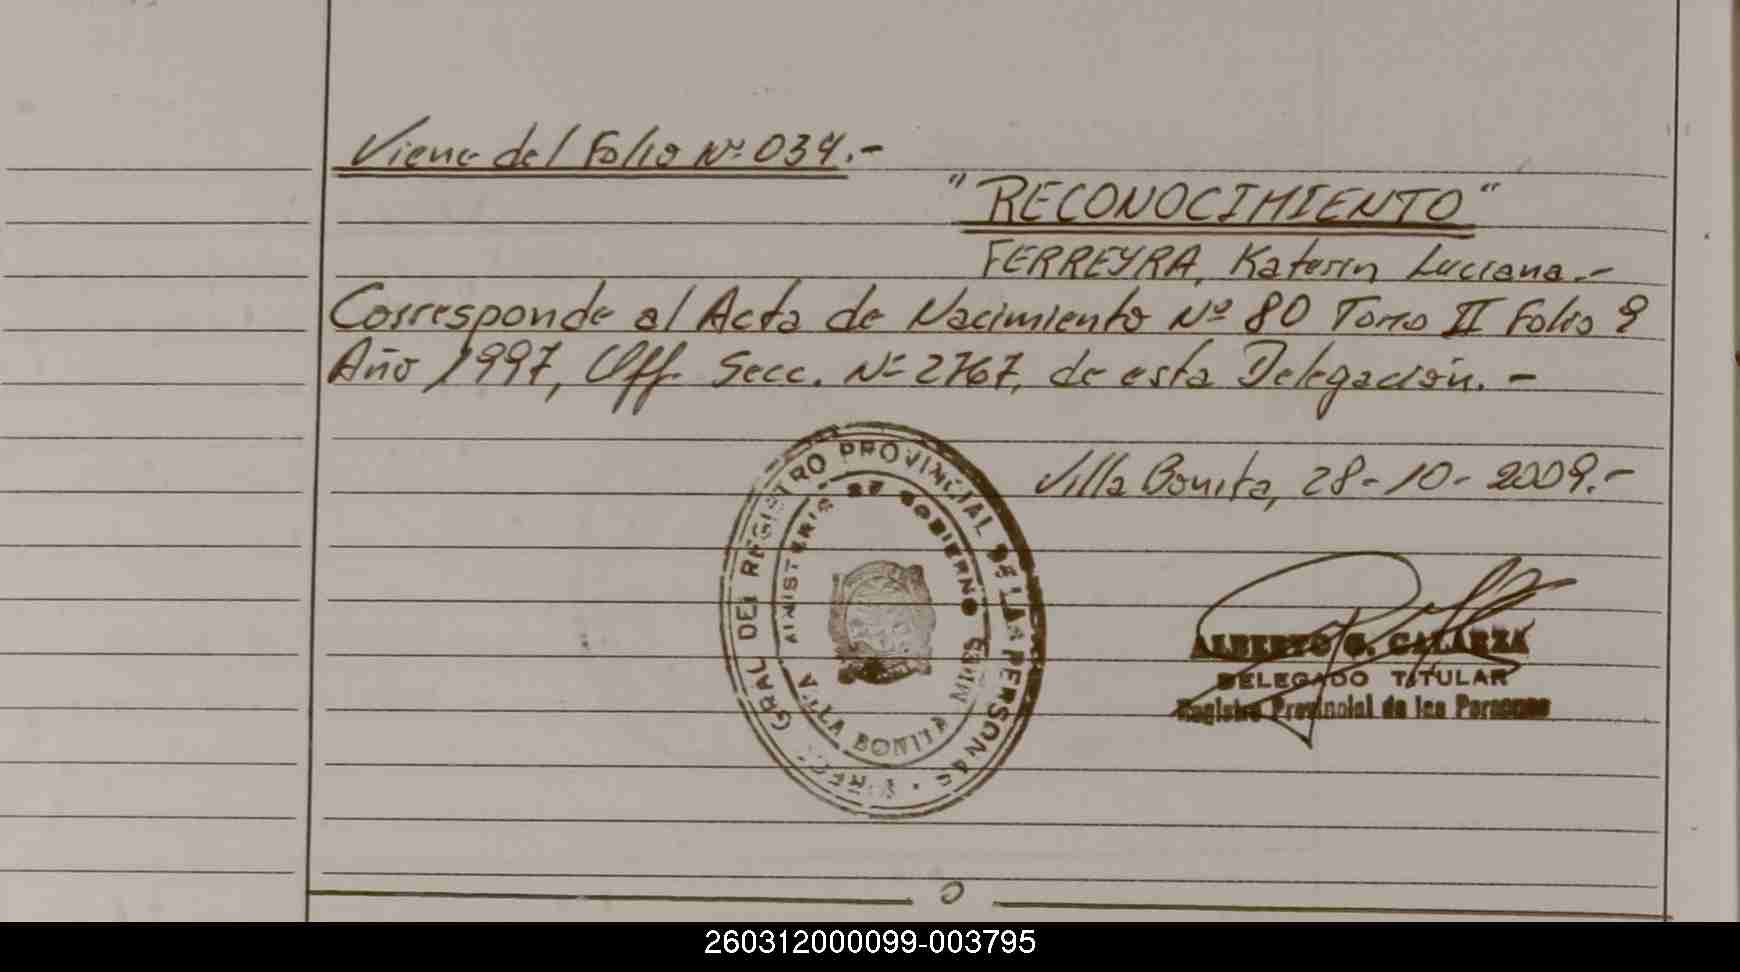 Viene del Folio Nº 034.-
"RECONOCIMIENTO"
FERREYRA, Katerin Luciana.-
Corresponde al Acta de Nacimiento Nº 80 Tomo II Folio 9
Año 1997, Off. Secc. Nº 2767, de esta Delegación.-
GRAL DEL REGISTRO PROVINCIAL DE LAS PERSONAS
MINISTERIO DE GOBIERNO
VILLA BONITA
Villa Bonita, 28-10-2009.-
ALBERTO G. GALARZA
DELEGADO TITULAR
Registro Provincial de las Personas
260312000099-003795